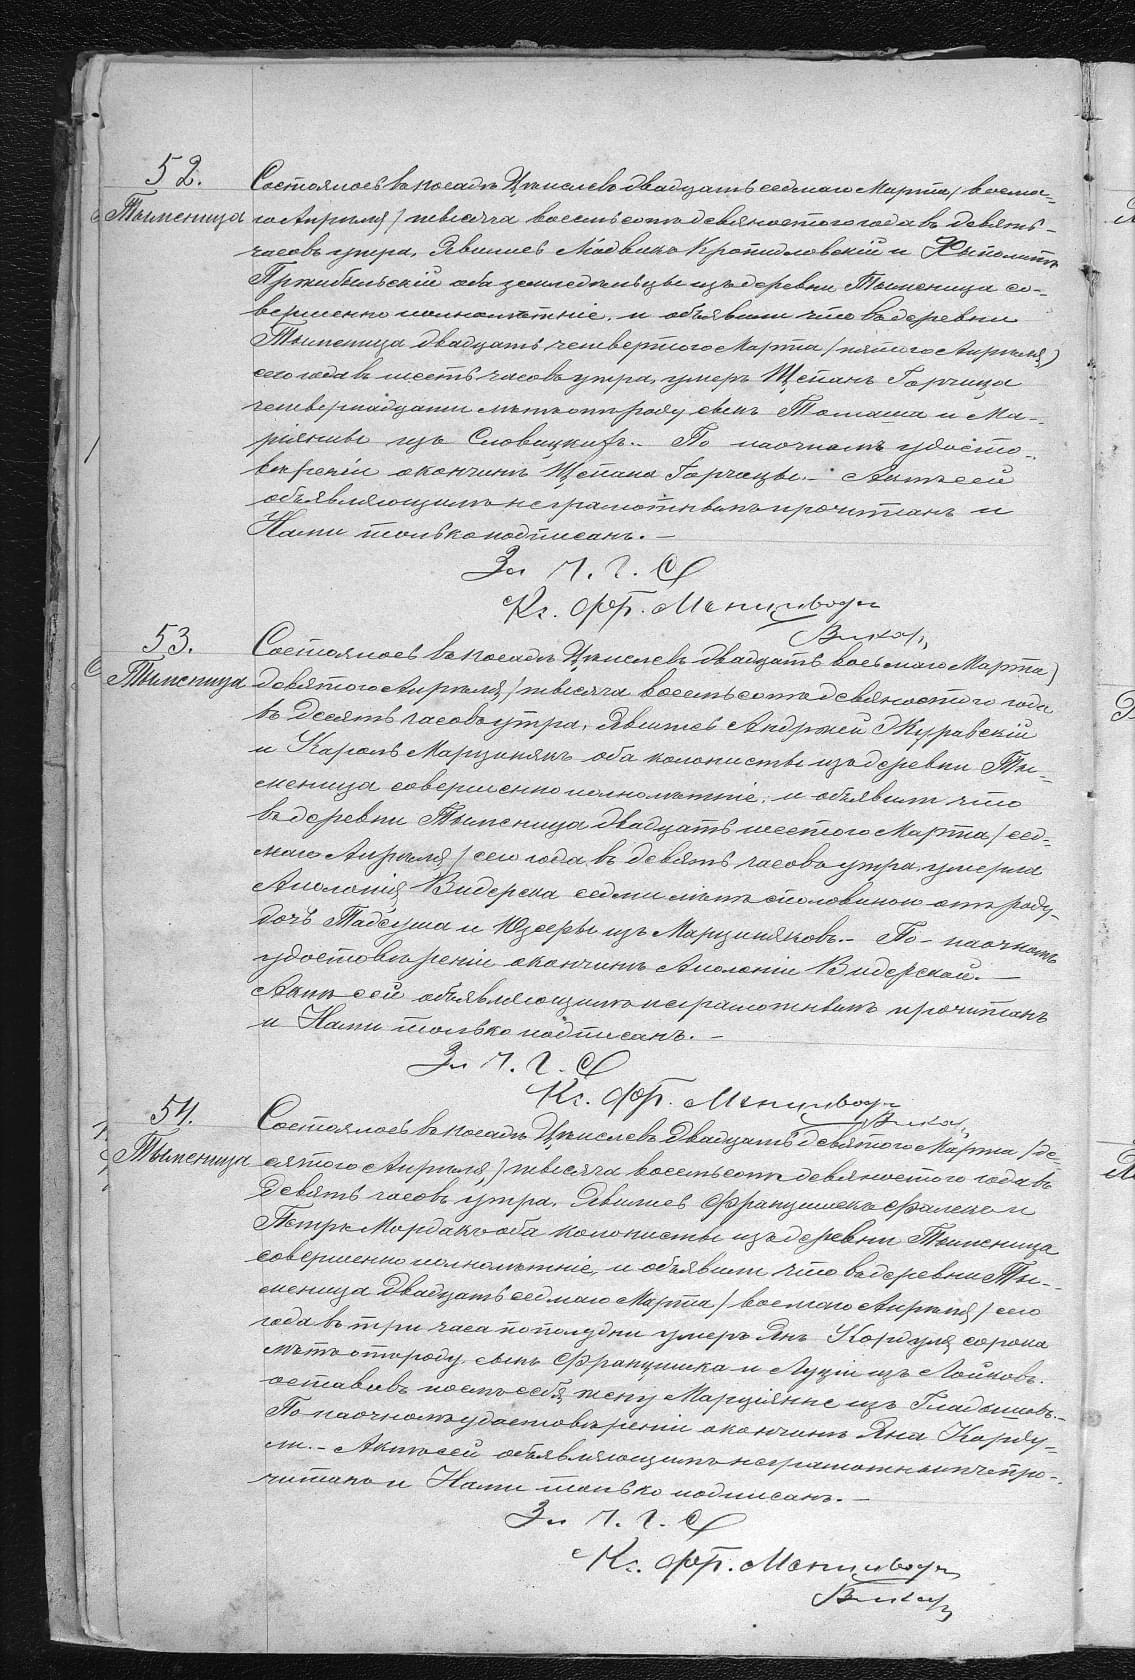 52.
Тыменица
Состоялось въ посадѣ Цѣпелевъ двадцать седьмаго Марта / восьма-
го Апрѣля / тысяча восемьсотъ девяностого года въ девять
часовъ утра. Явились Людвикъ Кропидловскій и
Пржибыльскій оба земледѣльцы изъ деревни Тыменица со-
вершеннолѣтніе, и объявили что въ деревни
Тыменица двадцать четвертого Марта / пятого Апрѣля)
сего года въ шесть часовъ утра, умеръ Щепанъ Горчица
четырнадцати лѣтъ отъ роду сынъ Томаша и Ма-
ріянны изъ По наочномъ удосто-
вѣреніи о кончинѣ Щепана Горчицы.- Актъ сей
объявляющимъ неграмотнымъ прочитанъ и
Нами только подписанъ.-
Кс. Фр.
Викар
53.
Тыменица
Состоялось въ посадѣ Цѣпелевъ двадцать восьмаго Марта)
девятого Апрѣля / тысяча восемьсотъ девяностого года
въ десять часовъ утра, Явились Андржей Журавскій
и Кароль Марцинякъ оба колонисты изъ деревни Ты-
меница совершеннолѣтніе, и объявили что
въ деревни Тыменица двадцать шестого Марта / сед-
маго Апрѣля / сего года въ девять часовъ утра, умерла
Аполонія Видерска седми лѣтъ съ половиною отъ роду,
дочь Тадеуша и Юзефы изъ Марциняковъ.- По наочномъ
удостовѣреніи о кончинѣ Аполоніи Видерской.-
Актъ сей объявляющимъ неграмотнымъ прочитанъ
и Нами только подписанъ.-
Кс. Фр.
Викар
54.
Тыменица
Состоялось въ посадѣ Цѣпелевъ двадцать девятого Марта / де-
сятого Апрѣля, / тысяча восемьсотъ девяностого года въ
девять часовъ утра. Явились Францишекъ и
Петръ Мордакъ оба колонисты изъ деревни Тыменица
совершеннолѣтніе, и объявили что въ деревни Ты-
меница двадцать седмаго Марта / восмаго Апрѣля / сего
года въ три часа пополудни умеръ Янъ Кордуля сорока
лѣтъ отъ роду, сынъ Францишка и Луціи изъ Лойковъ.
оставивъ послѣ себя жену Марціянне изъ Гладышовъ.-
По наочномъ удостовѣреніи о кончинѣ Яна Корду-
ли.- Актъ сей объявляющимъ неграмотнымъ про-
читанъ и Нами только подписанъ.-
Кс. Фр.
Викар